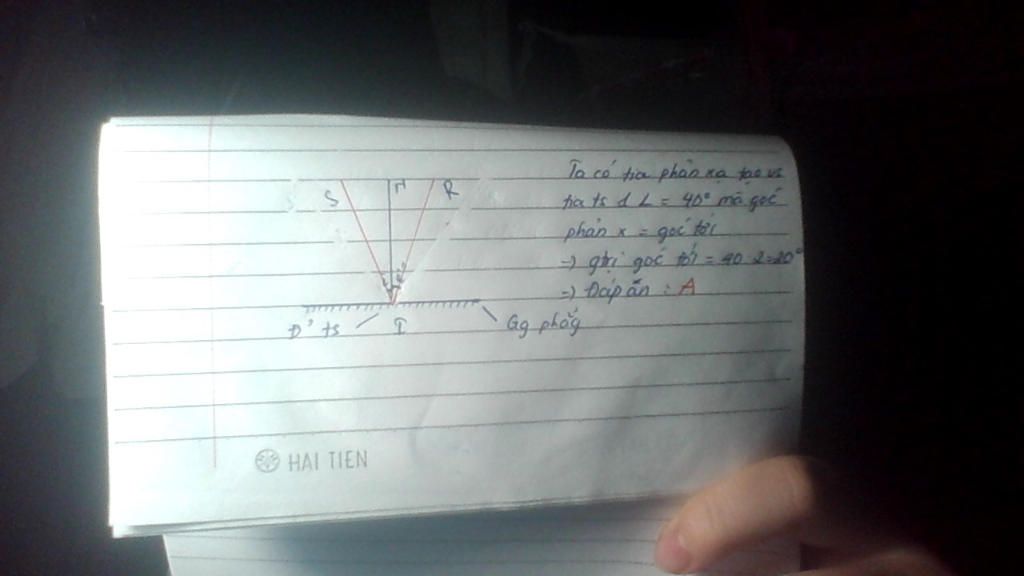 S N R
Ta có tia phản xạ tạo vs
tia ts 1 L = 40° mà góc
phản x = góc tới
=) gtrị góc tới = 40:2=20°
=) Đáp án : A
Đ' ts I Gg phẳg
HAI TIEN